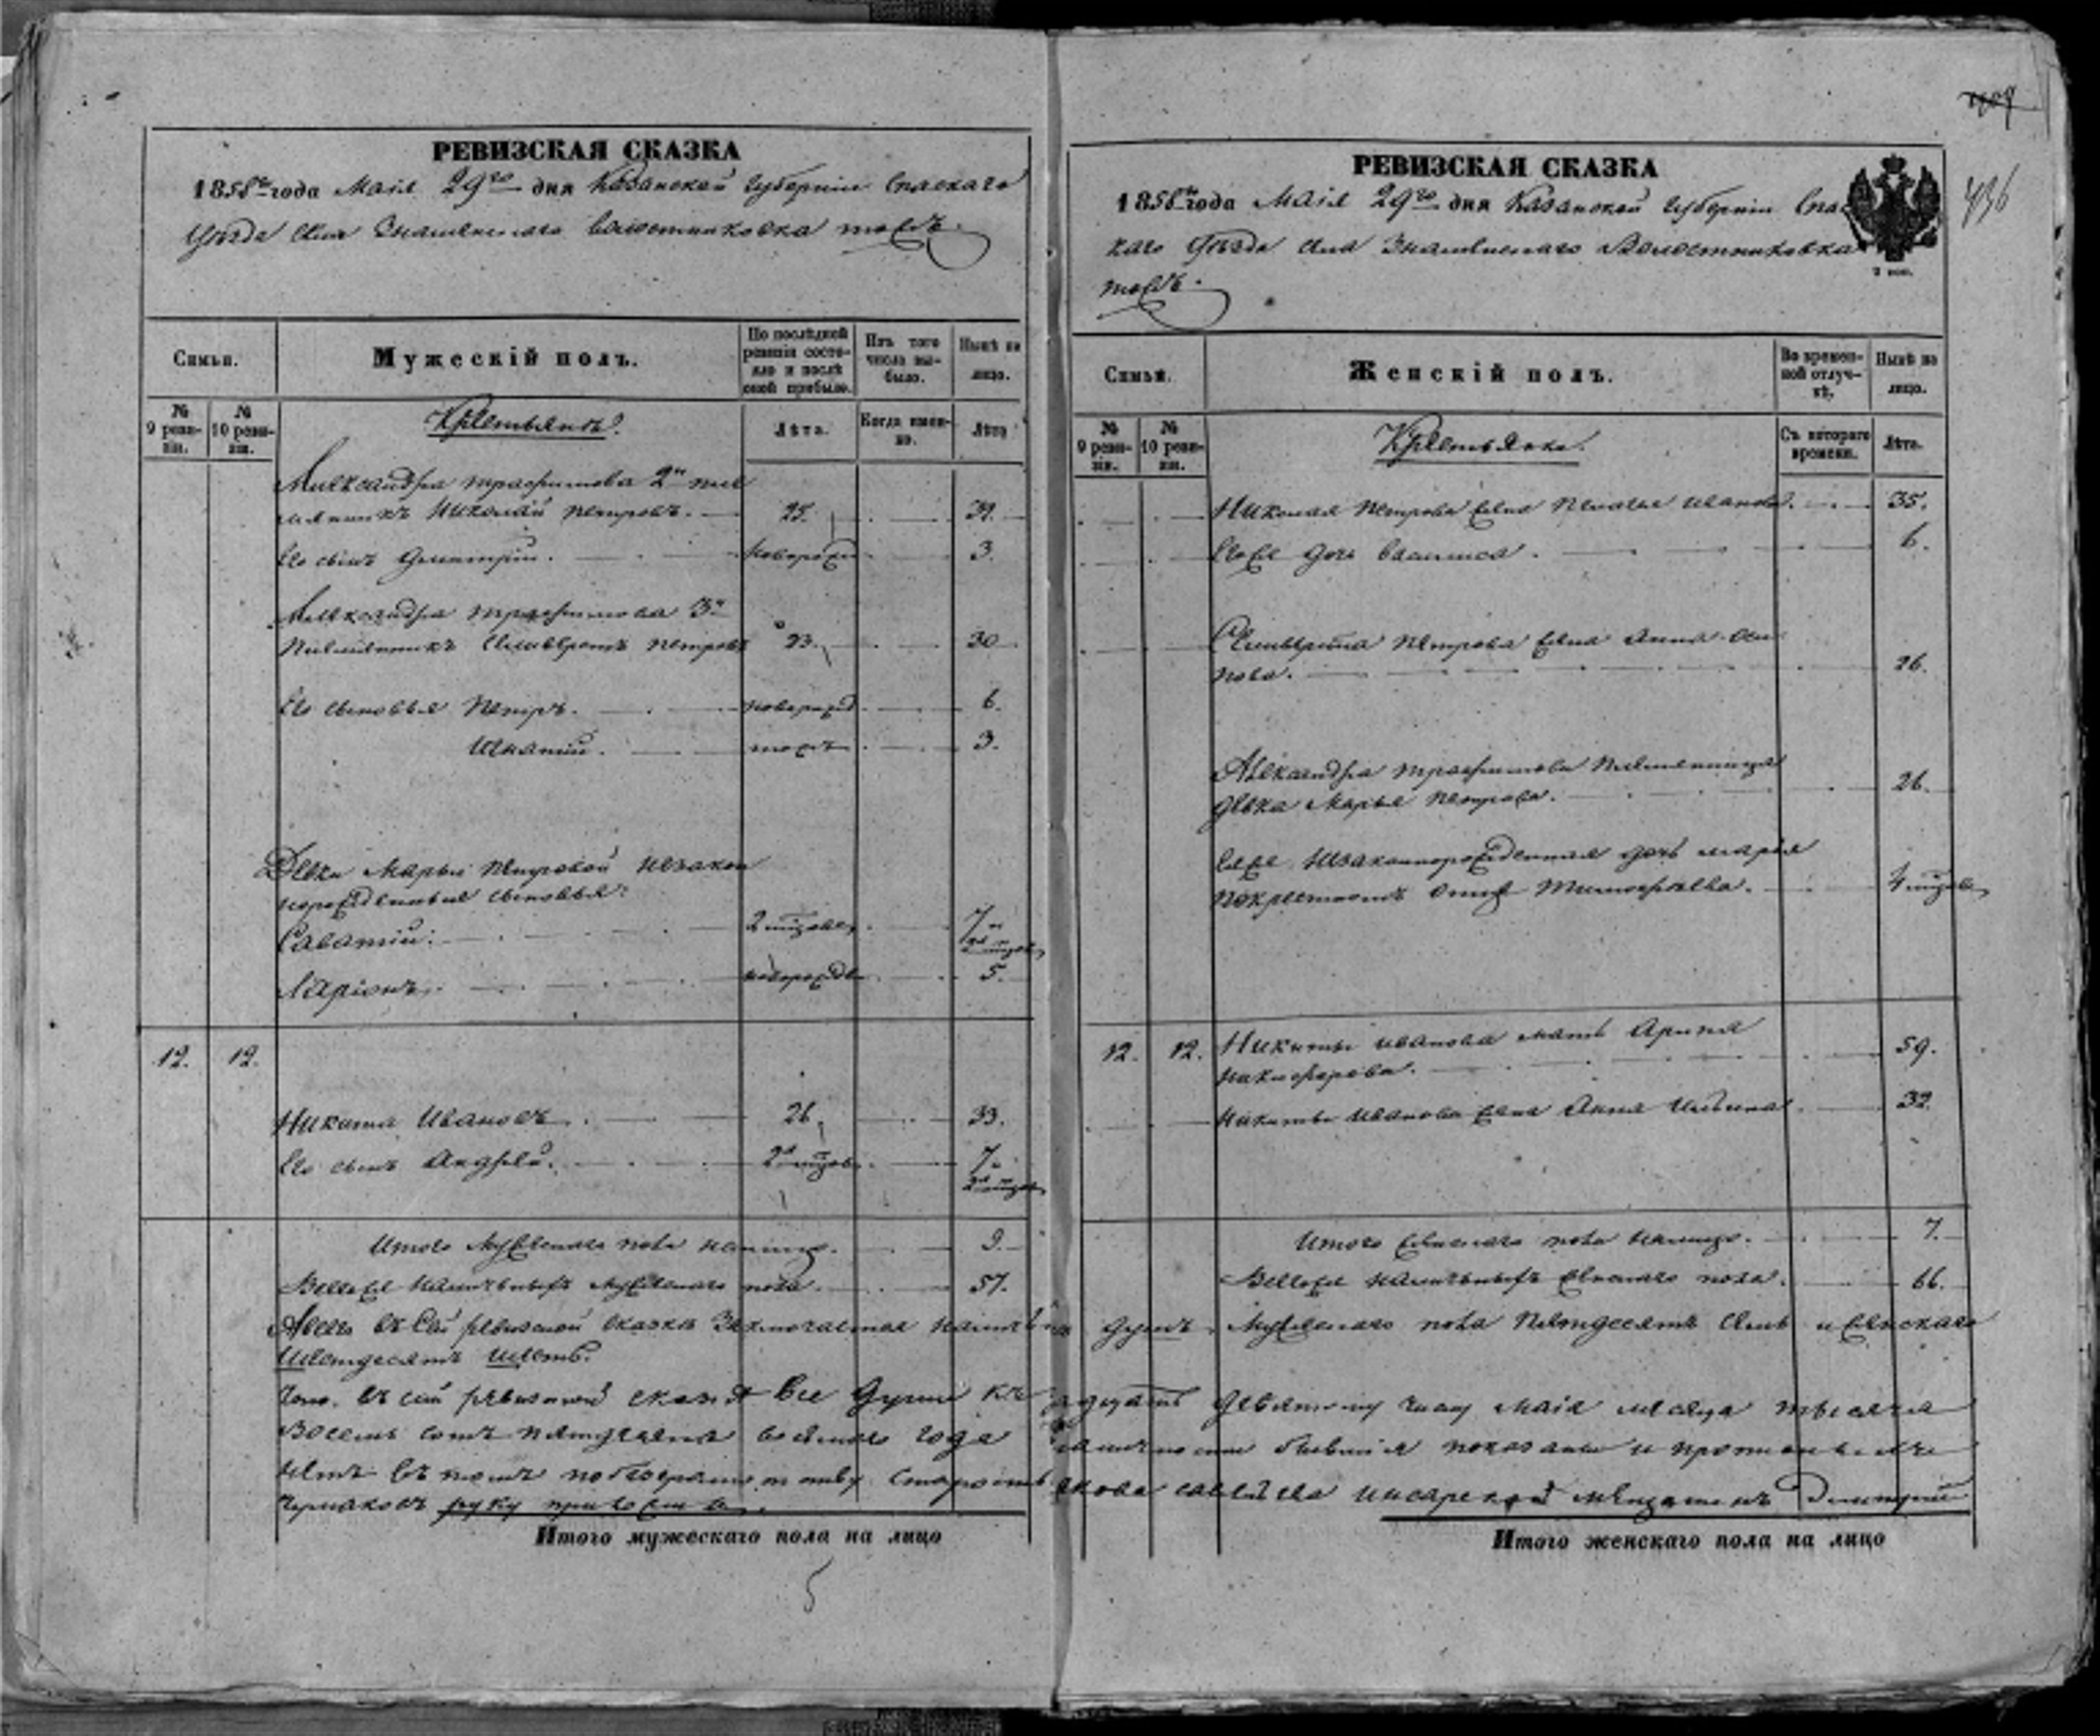 РЕВИЗСКАЯ СКАЗКА
1858го года Маія 29го дня Казанской Губерніи Спаскаго
Уѣзда Села Знаменскаго Волостниковка тожъ
Семьи.
Мужескій полъ.
По послѣдней ревизіи состояло и послѣ оной прибыло.
Изъ того числа выбыло.
Нынѣ на лицо.
№ 9 ревизіи.
№ 10 ревизіи.
Крестьянъ.
Лѣта.
Когда именно.
Лѣта
Александра Трафимова 2й пле
мянникъ Николай Петровъ. 25. 32.
Его сынъ Дмитрій. новорожд 3.
Александра Трафимова 3й
Племянникъ Селиверстъ Петровъ 23. 30
Его сыновья Петръ. новорожд 6.
Игнатій. тожъ 3.
Девки Марьи Петровой незакон
норожденные сыновья:
Саватій: 2 мѣсяцев 7
Ларіонъ. новорожде 5.
12. 12.
Никита Ивановъ 26 33.
Его сынъ Андрей. 7
Итого Мужескаго пола налицо. 9
Всегоже наличныхъ Мужескаго пола. 57.
РЕВИЗСКАЯ СКАЗКА
1858го года Маія 29го дня Казанской Губерніи Спас
каго Уѣзда Села Знаменскаго Волостниковка
тожъ.
436
Семьи.
Женскій полъ.
Во временной отлучкѣ,
Нынѣ на лицо.
№ 9 ревизіи.
№ 10 ревизіи.
Крестьянки.
Съ котораго времени.
Лѣта.
Николая Петрова жена Пелагея Иванова. 35.
Егоже дочь Василиса. 6.
Селиверста Петрова жена Анна Оси
пова. 26.
Александра Трафимова Племянница
девка Марья Петрова. 26.
Еяже Незаконнорожденная дочь Марья
покрестномъ отцѣ Тимофѣева. 4 мѣсяц
12. 12. Никиты Иванова мать Арина
Никифорова. 59.
Никиты Иванова жена Анна Ильина. 32
Итого женскаго пола налицо. 7.
Всегоже наличныхъ женскаго пола. 66.
Авсего въ сей ревизской сказкѣ Заключается наличныхъ душъ Мужескаго пола Пятдесятъ семь и женскаго
Шестдесятъ шесть.
Что въ сей ревизской сказкѣ все души къ двадцать девятому числу Маія месяца тысяча
Восемь сотъ пятдесятъ восьмаго года на личности бывшія показаны и прописныхъ
нетъ въ томъ Инсарской мещанинъ Дмитрій
руку приложилъ.
Итого мужескаго пола на лицо
Итого женскаго пола на лицо
5